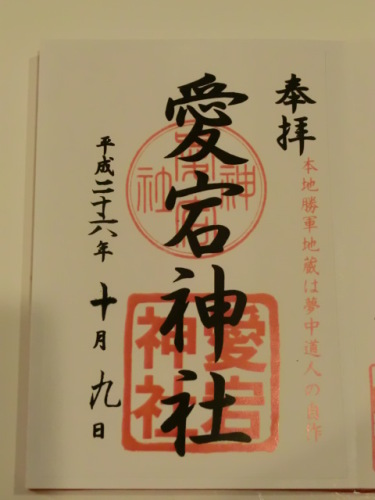 奉拝
本地勝軍地蔵は夢中道人の自作
愛宕神社
愛宕
神社
平成二十六年 十月 九日